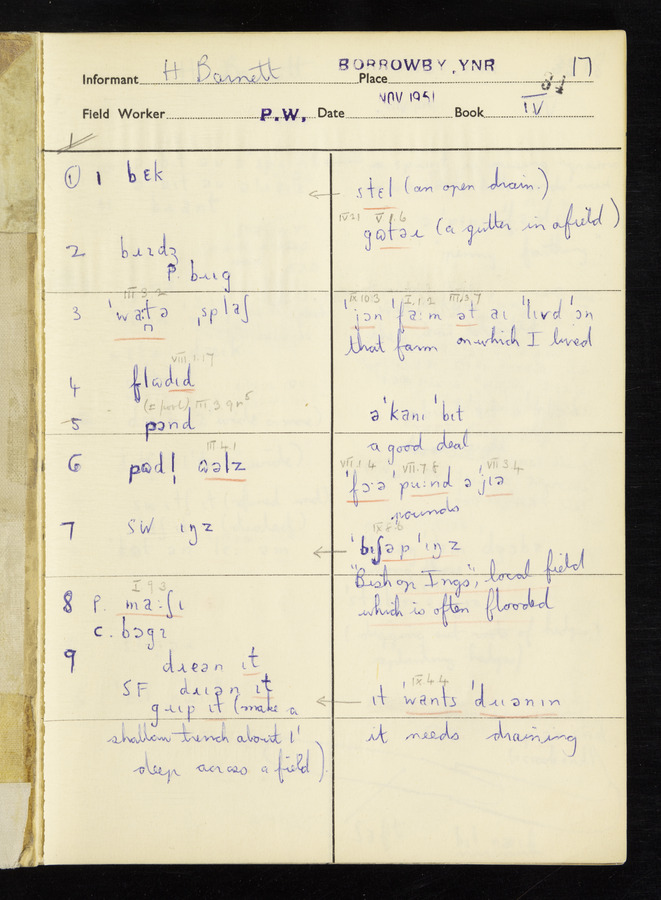 Informant H Barnett
BORROWBY, YNR
Place
17
Field Worker P.W. Date NOV 1951 Book IV
① 1 bɛk
2 bɹɪdʒ
P. bɹɪg
III 3 2
3 ˈwaːtə ˌsplaʃ
VIII.1.17
4 flɷdɪd
III.3
5 pɔnd
III 4.1
6 pɷdl̩ ɷəlz
7 SW ɪŋz
I 9 3
8 P. maːʃɪ
C. bɔgɪ
9 dɹɛən ɪt
SF dɹɪən ɪt
gɹɪp ɪt (make a
shallow trench about 1'
deep across a field)
← stɛl (an open drain.)
IV 21 V 1.6
gɷtəɹ (a gutter in a field)
IX.10.3 I,1.2 III,3,7
ˈjɔn ˈfaːm ət aɪ ˈlɪvd ˈɔn
that farm on which I lived
əˈkanɪ ˈbɪt
a good deal
VII.1.4 VII.7.8 VII 3 4
ˈfɔːə ˈpuːnd ə ˈjɪə
pounds
← ˈbɪʃəp ˈɪŋz
"Bishop Ings", local field
which is often flooded
IX 4.4
← ɪt ˈwants ˈdɹɪənɪn
it needs draining